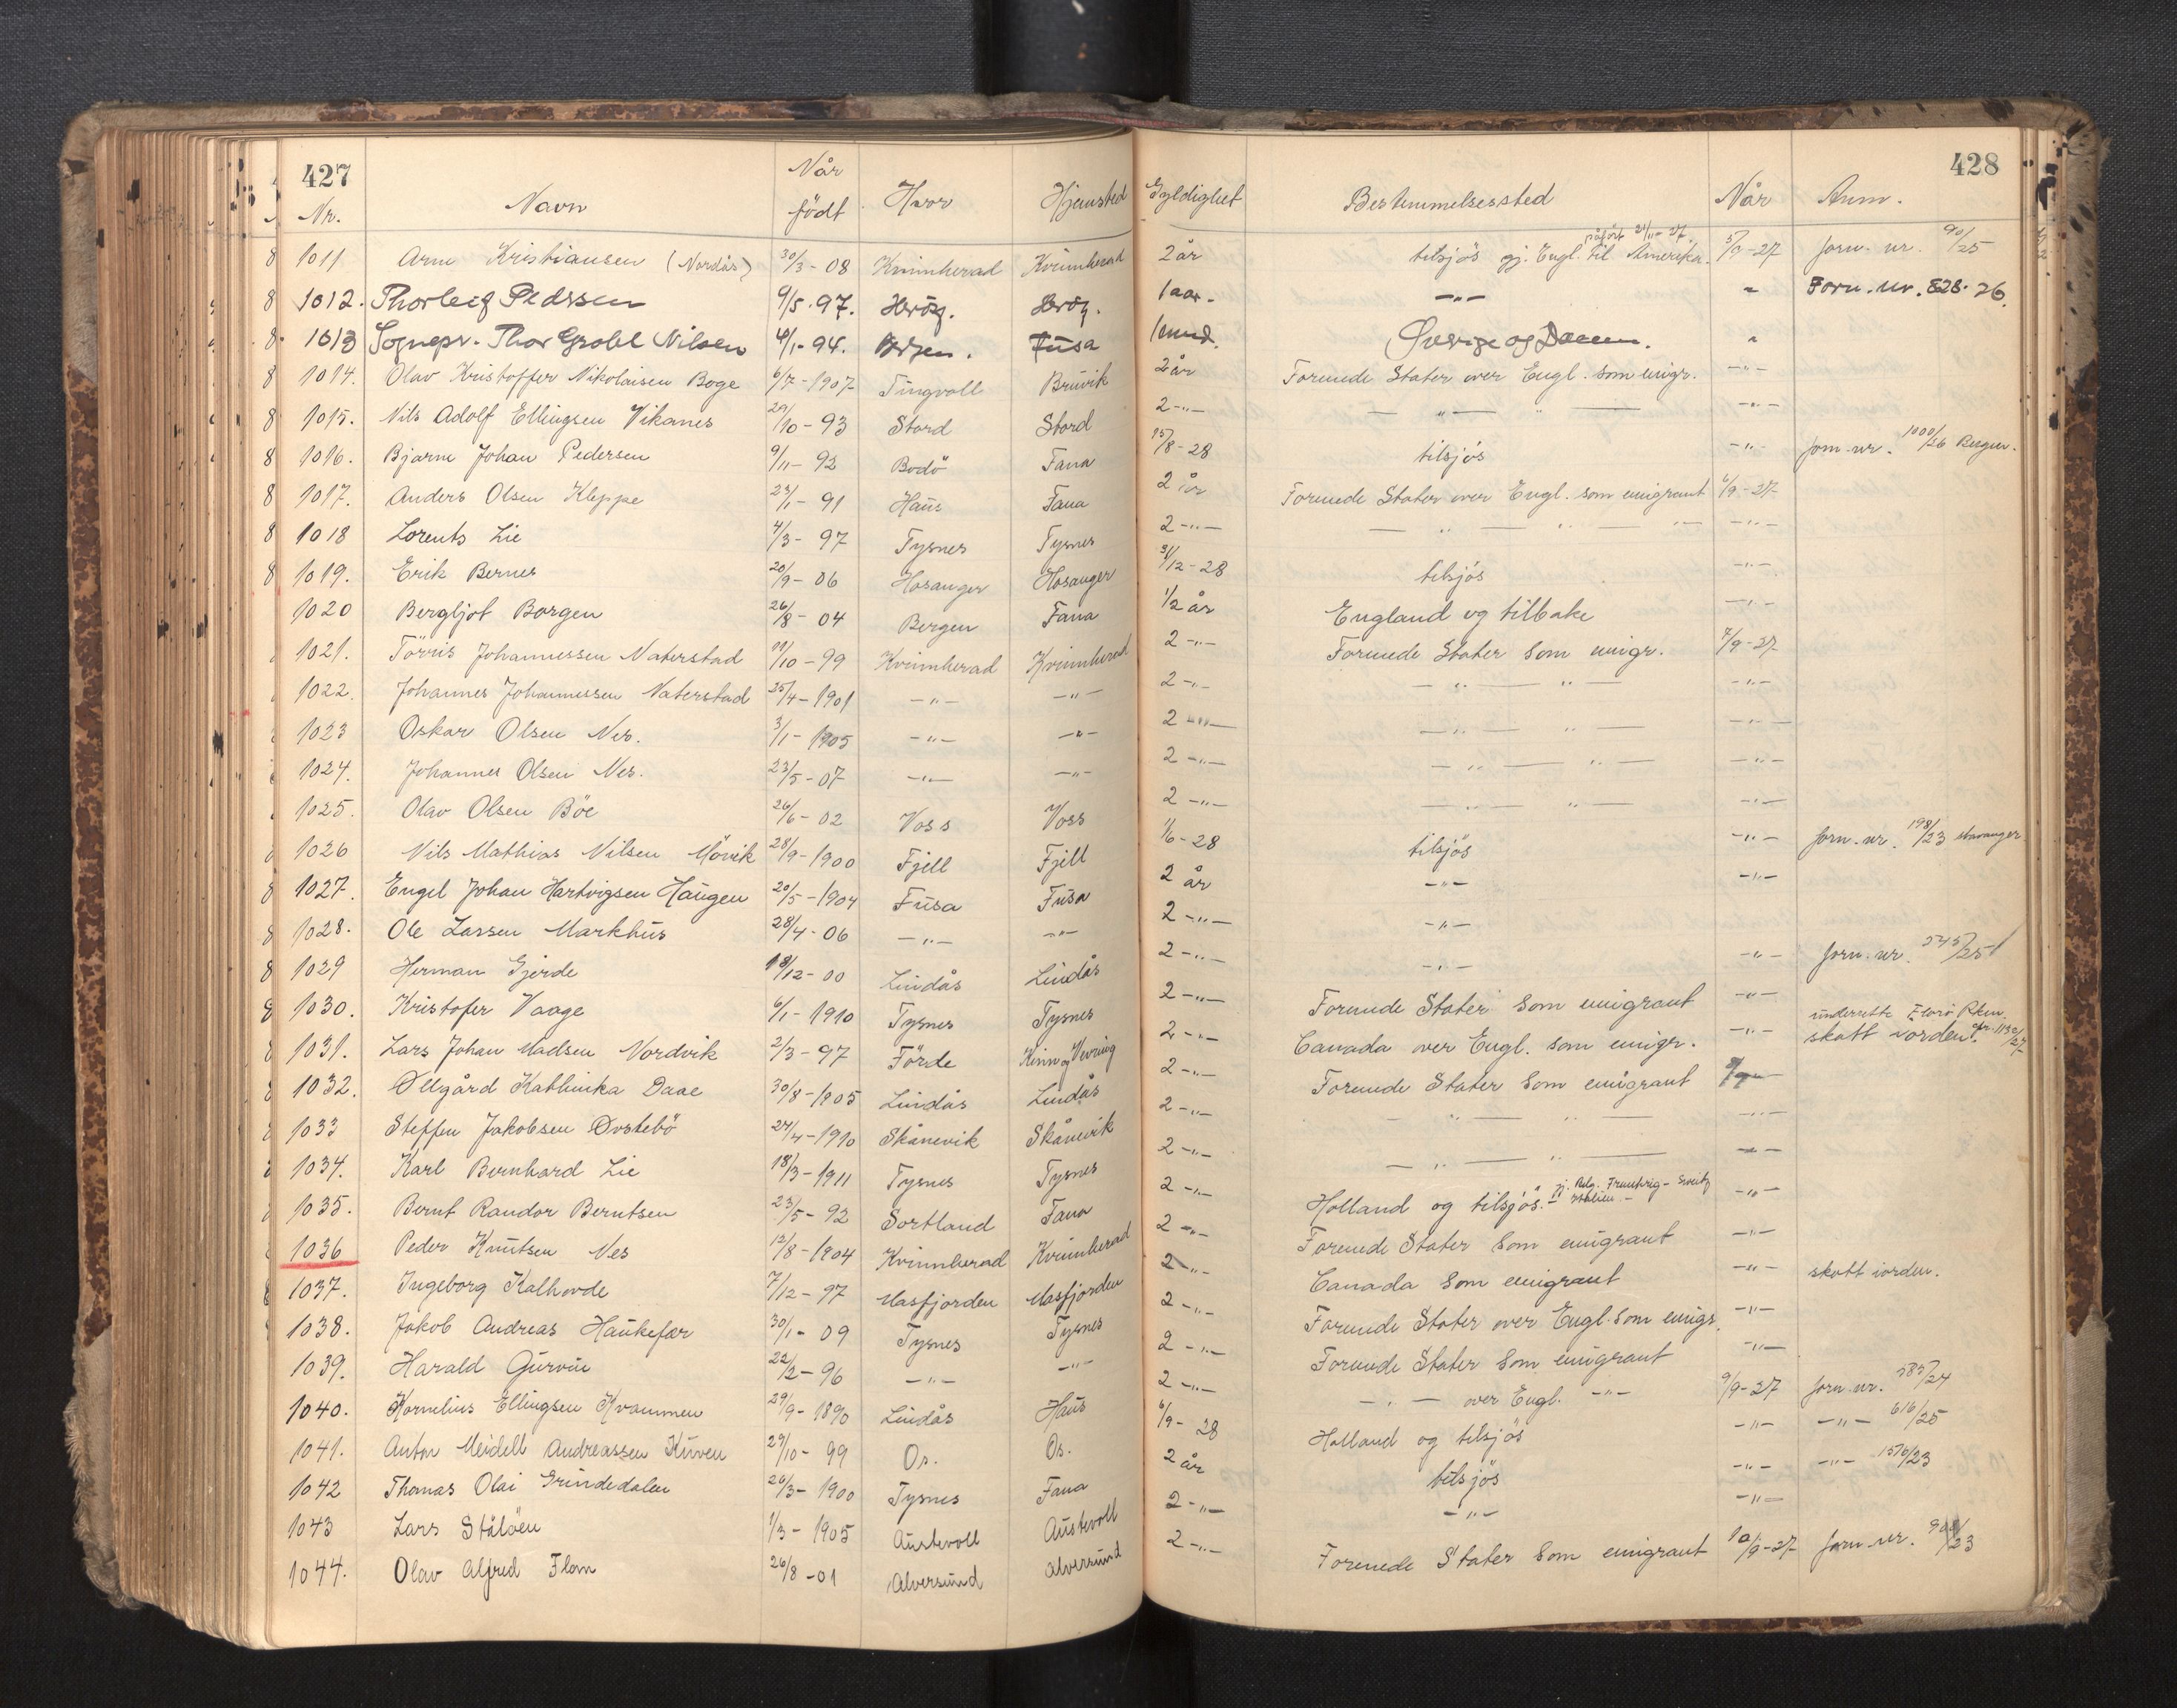 427
428
Nr. Navn Når født Hvor Hjemsted Gyldighet Bestemmelsessted Når Anm.
påført 21/11-27.
1011 Arne Kristiansen (Nordås) 30/3-08 Kvinnherad Kvinnherad 2 år tilsjös gj. Engl. til Amerika. 5/9-27 forn. nr. 90/25
1012. Thorleif Pedersen 9/5.97. Heröy. Heröy. 1 aar. -"- " Forn. nr. 828.26.
1013 Sognepr. Thor Grahl Nilsen 4/1-94. Bergen. Fusa 1 mnd. Sverige og Danm. "
1014. Olav Kristoffer Nikolaisen Boge 6/7-1907 Tingvoll Bruvik 2 år Forenede Stater over Engl. som emigr. -"-
1015. Nils Adolf Ellingsen Vikanes 29/10-93 Stord Stord 2-"- — " — " — -"-
1016. Bjarne Johan Pedersen 9/11-92 Bodö Fana 15/8-28 tilsjös -"- forn. nr. 1000/26 Bergen.
1017. Anders Olsen Kleppe 23/1-91 Haus Fana 2 år Forenede Stater over Engl. som emigrant 6/9-27
1018 Lorents Lie 4/3-97 Tysnes Tysnes 2-"- — " — " — " — -"-
1019. Erik Bernes 20/9-06 Hosanger Hosanger 31/12-28 tilsjös -"-
1020 Bergljot Borgen 26/8-04 Bergen Fana 1/2 år England og tilbake -"-
1021. Törris Johannessen Naterstad 11/10-99 Kvinnherad Kvinnherad 2-"- Forenede Stater som emigr. 7/9-27
1022. Johannes Johannessen Naterstad 25/4-1901 -"- -"- 2-"- — " — " — -"-
1023 Oskar Olsen Nes. 3/1-1905 -"- -"- 2-"- — " — " — -"-
1024. Johannes Olsen Nes. 23/5-07 -"- -"- 2-"- — " — " — -"-
1025. Olav Olsen Böe 26/6-02 Voss Voss 2-"- — " — " — -"-
1026 Nils Mathias Nilsen Mövik 28/9-1900 Fjell Fjell 1/6-28 tilsjös -"- forn. nr. 198/23 Stavanger
1027. Engel Johan Hartvigsen Haugen 20/5-1904 Fusa Fusa 2 år -"- -"-
1028. Ole Larsen Markhus 28/4-06 -"- -"- 2-"- -"-
1029 Herman Gjerde 18/12-00 Lindås Lindås 2-"- -"- -"- forn. nr. 545/25
1030. Kristofer Vaage 6/1-1910 Tysnes Tysnes 2-"- Forenede Stater som emigrant -"-
1031. Lars Johan Madsen Nordvik 2/3-97 Förde Kinn og Vevring 2-"- Canada over Engl. som emigr. -"- underrette skatt iorden
1032. Ollgård Kathinka Daae 30/8-1905 Lindås Lindås 2-"- Forenede Stater som emigrant
1033 Steffen Jakobsen Övstebö 24/4-1910 Skånevik Skånevik 2-"- — " — " — -"-
1034. Karl Bernhard Lie 18/3-1911 Tysnes Tysnes 2-"- — " — " — -"-
1035. Bernt Randor Berntsen 23/5-92 Sortland Fana 2-"- Holland og tilsjös. gj. Belg. Frankrig - Sveitz - Italien - -"-
1036 Peder Knutsen Nes 12/8-1904 Kvinnherad Kvinnherad 2-"- Forenede Stater som emigrant -"-
1037. Ingeborg Kalhovde 7/12-97 Masfjorden Masfjorden 2-"- Canada som emigrant -"- skatt iorden.
1038. Jakob Andreas Haukefær 30/1-09 Tysnes Tysnes 2-"- Forenede Stater over Engl. som emigr. -"-
1039. Harald Gurvin 22/2-96 -"- -"- 2-"- Forenede Stater som emigrant -"-
1040. Kornelius Ellingsen Kvammen 29/9-1890 Lindås Haus 2-"- -"- over Engl. -"- 9/9-27 forn. nr. 585/24
1041. Anton Meidell Andreassen Kuven 29/10-99 Os. Os. 6/9-28 Holland og tilsjös -"- -"- 616/25
1042 Thomas Olai Grindedalen 26/3-1900 Tysnes Fana 2 år tilsjös -"- -"- 1576/23
1043 Lars Stålöen 1/3-1905 Austevoll Austevoll 2-"- -"- -"-
1044. Olav Alfred Flom 26/8-01 Alversund Alversund 2-"- Forenede Stater som emigrant 10/9-27 forn. nr.